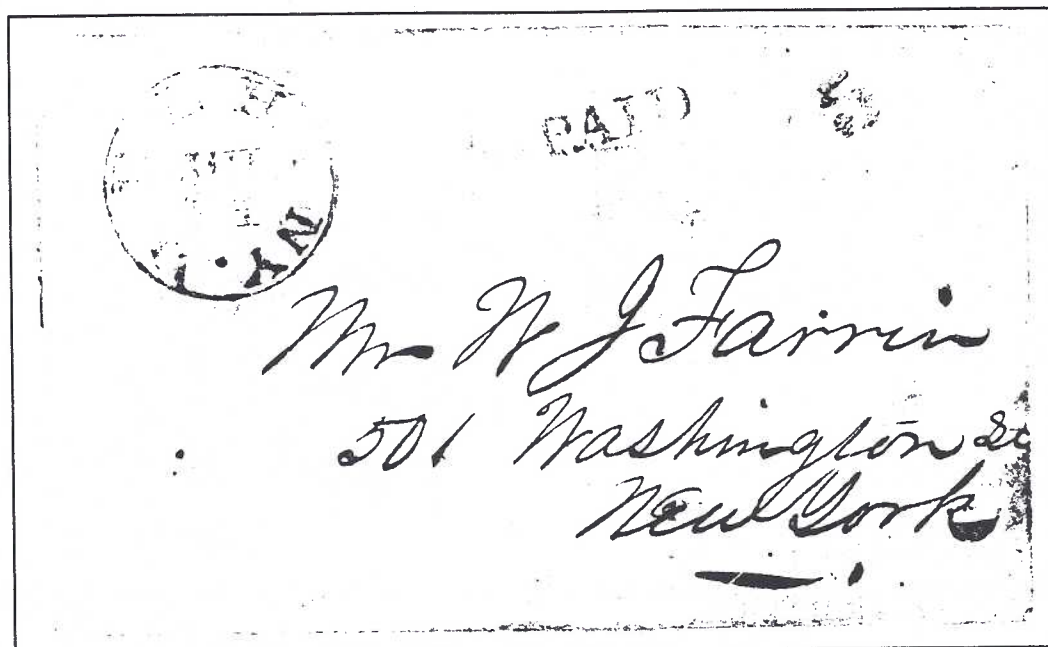 PAID
N.Y.
Mr W J Farrin
501 Washington St
New York